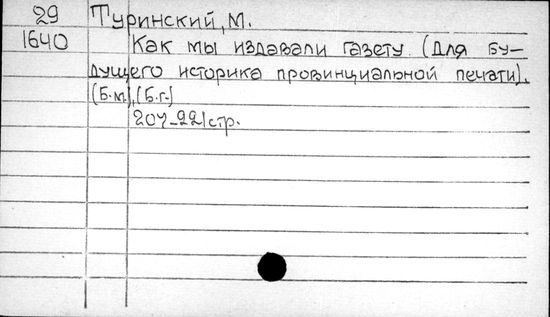 29 Туринский, М.
1640 Как мы издавали газету. (Для бу-
дущего историка провинциальной печати).
(Б.м.), (Б.г.)
207-221 стр.